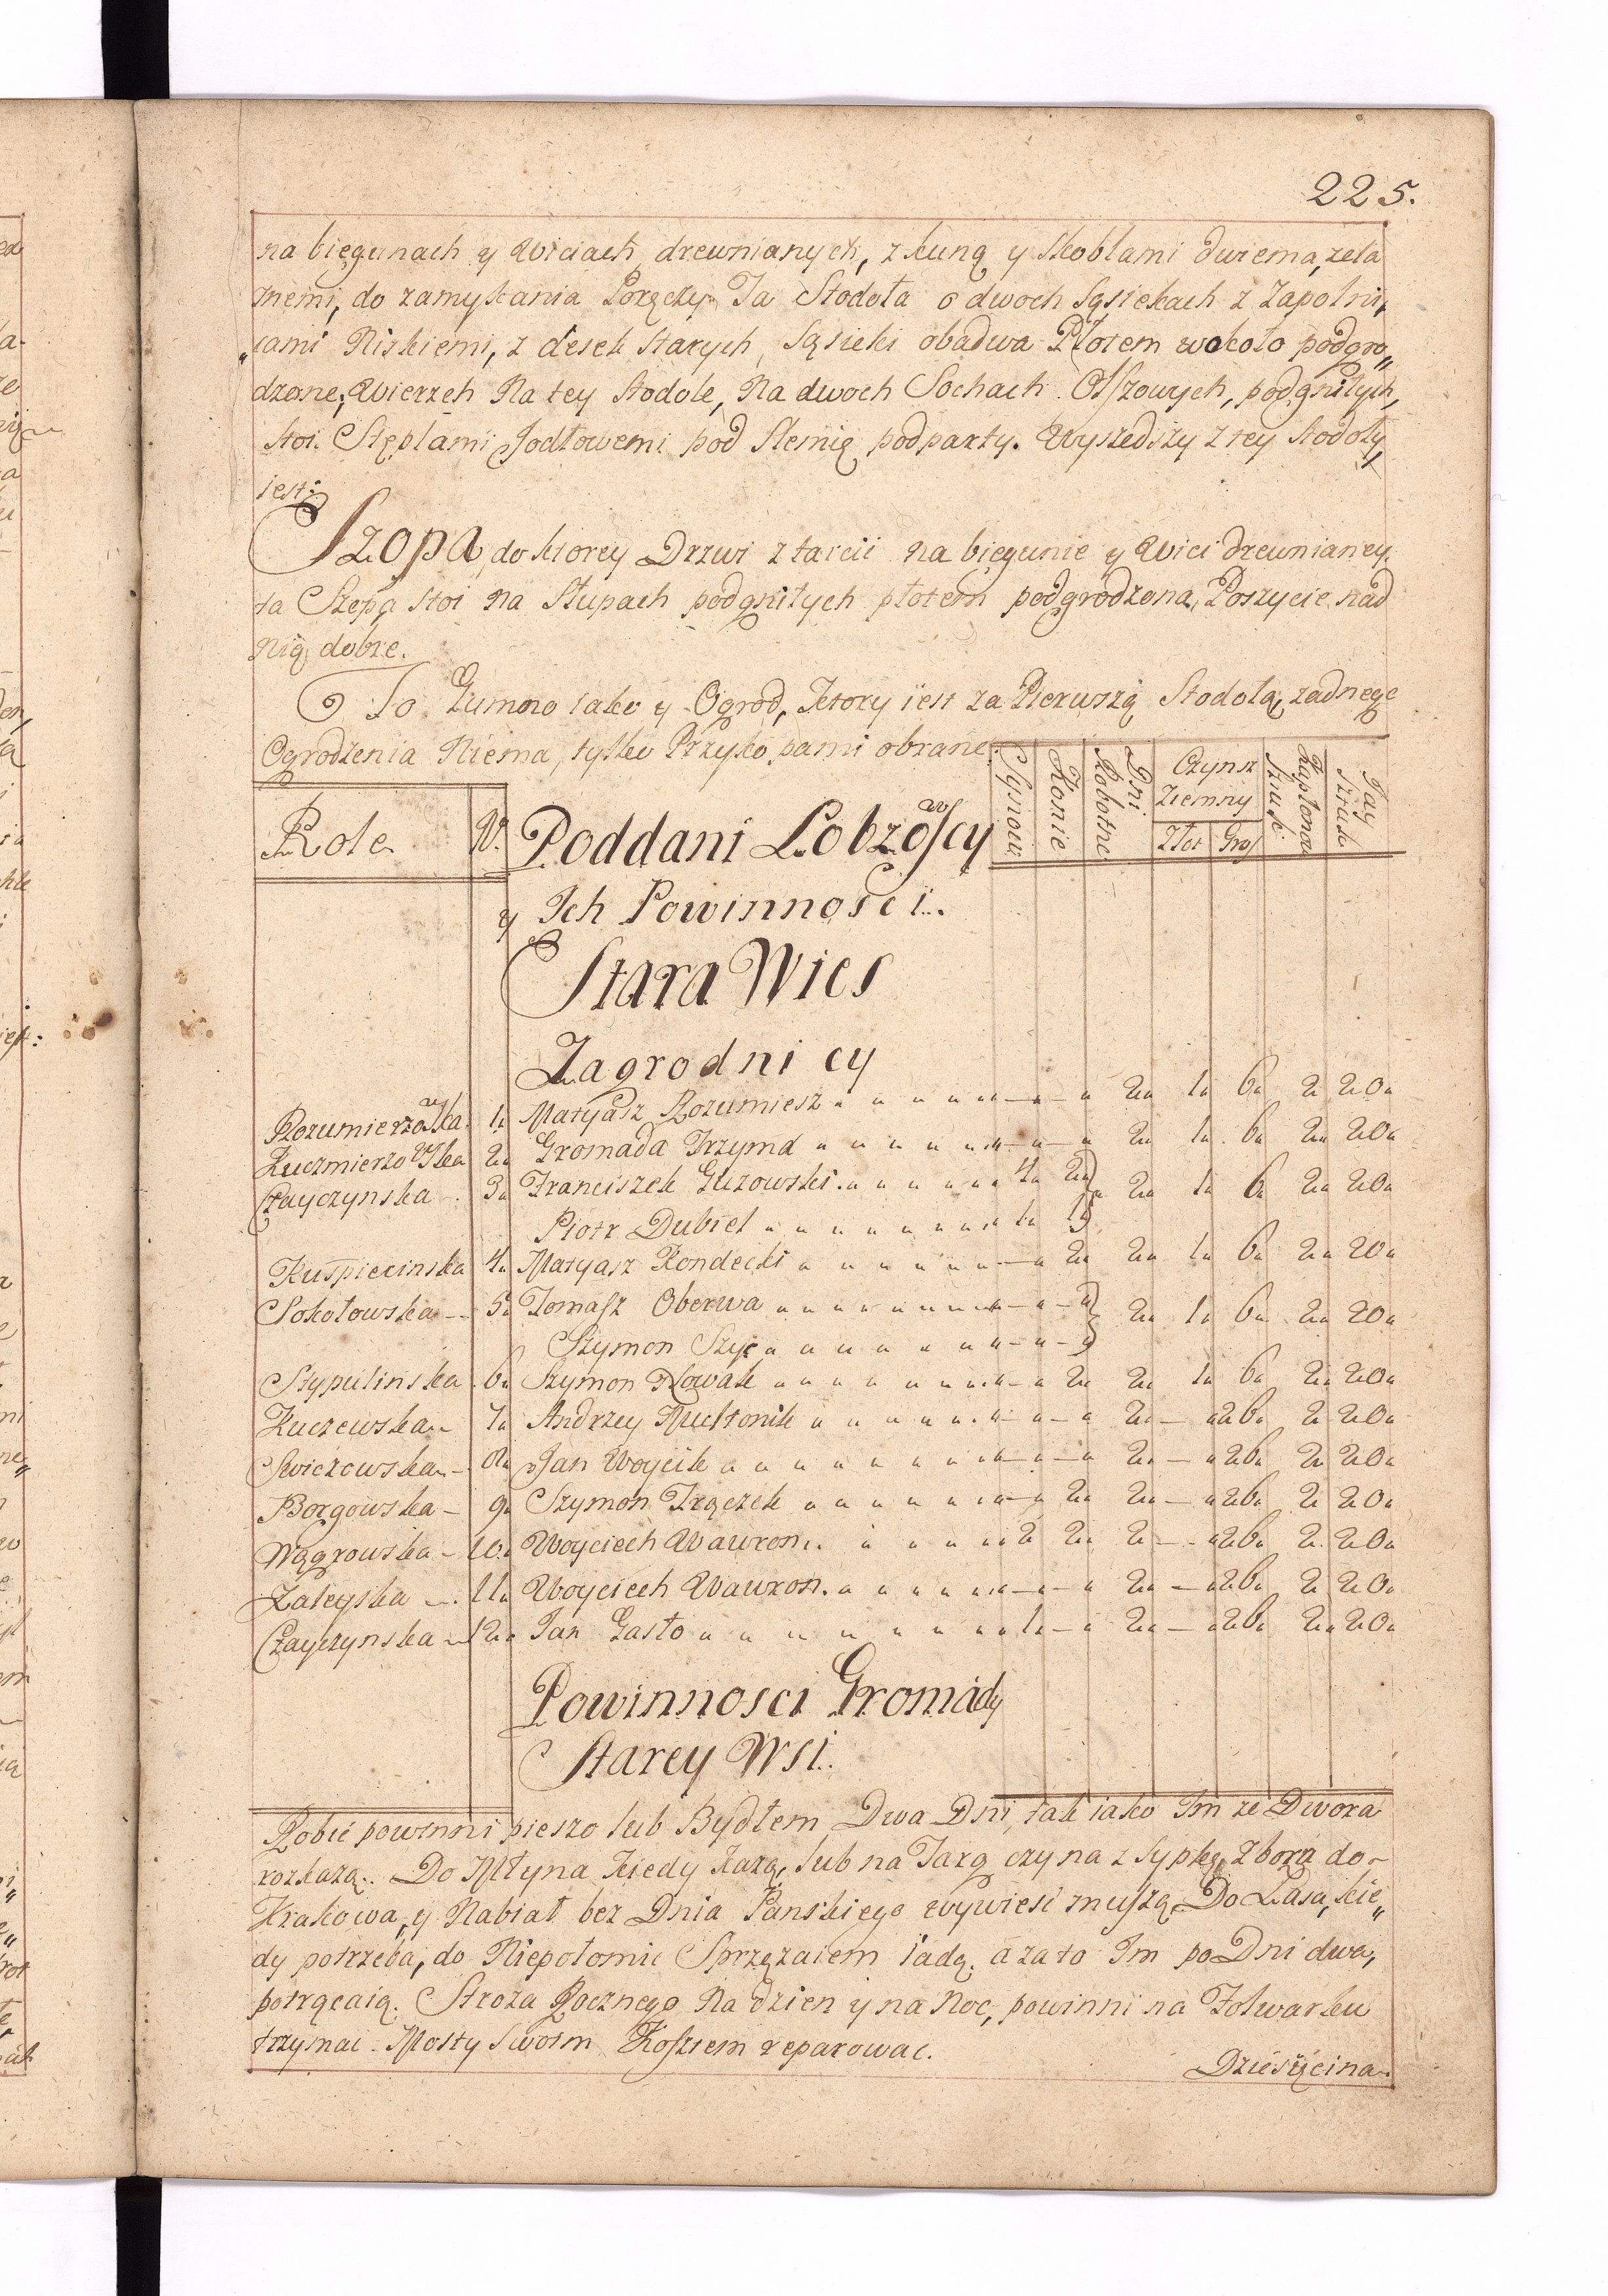 225.
na biegunach y Wiciach drewnianych, z kuną y Skoblami dwiema, zela
znemi, do zamykania Poręczy. Ta Stodoła o dwoch Sąsiekach z Zapolni,
„cami Niskiemi, z desek starych, Sąsieki obadwa Płotem wokoło podgro„
dzone, Wierzch Na tey Stodole, Na dwoch Sochach Olszowych, podgniłych,
stoi. Stęplami Jodłowemi pod Slemię podparty. Wyszedszy z tey Stodoły,
iest:
Szopa, do ktorey Drzwi z tarcic na biegunie y Wici drewnianey
ta Szopa stoi na Słupach podgniłych płotem podgrodzona, Poszycie nad
nią dobre.
To Gumno iako y Ogrod, Ktory iest za Pierwszą Stodołą, zadnego
Ogrodzenia Niema, tylko Przykopami obrane.
Role N. Poddani Lobzowscy Synowie Konie Dni Robotne Czynsz Ziemny Złot Gros Kapłonow Sztuk Jay Sztuk
y Ich Powinnosci.
Stara Wies
Zagrodnicy
Rozumierzowska 1 Matyasz Rozumiesz — — 2 1 6 2 20
Kuczmierzowska 2 Gromada Trzyma — — 2 1 6 2 20
Czayczynska 3 Franciszek Guzowski 4 2 } 2 1 6 2 20
Piotr Dubiel 1 1 }
Kuspiecinska 4 Matyasz Kondecki — 2 2 1 6 2 20
Sokołowska 5 Tomasz Oberwa — — } 2 1 6 2 20
Szymon Szyc — — }
Stypulinska 6 Szymon Nowak — 2 2 1 6 2 20
Kuczewska 7 Andrzey Muchonik — — 2 — 26 2 20
Swiezowska 8 Jan Woycik — — 2 — 26 2 20
Borgowska 9 Szymon Trączek — 2 2 — 26 2 20
Wągrowska 10 Woyciech Wawron 2 2 2 — 26 2 20
Zaleyska 11 Woyciech Wawron — — 2 — 26 2 20
Czayczynska 12 Jan Gasło 1 — 2 — 26 2 20
Powinnosci Gromady
Starey Wsi.
Robić powinni pieszo lub Bydłem Dwa Dni, tak iako Im ze Dwora
rozkazą. Do Młyna Kiedy Kazą, lub na Targ czy na z Sypkę Zboza do
Krakowa, y Nabiał bez Dnia Panskiego wywiesć muszą, Do Lasa, kie„
dy potrzeba, do Niepołomic Sprzęzaiem iadą. a za to Im po Dni dwa,
potrącaią. Stroza Rocznego Na dzien y na Noc, powinni na Folwarku
trzymac. Mosty Swoim Kosztem reparowac.
Dziesięcina